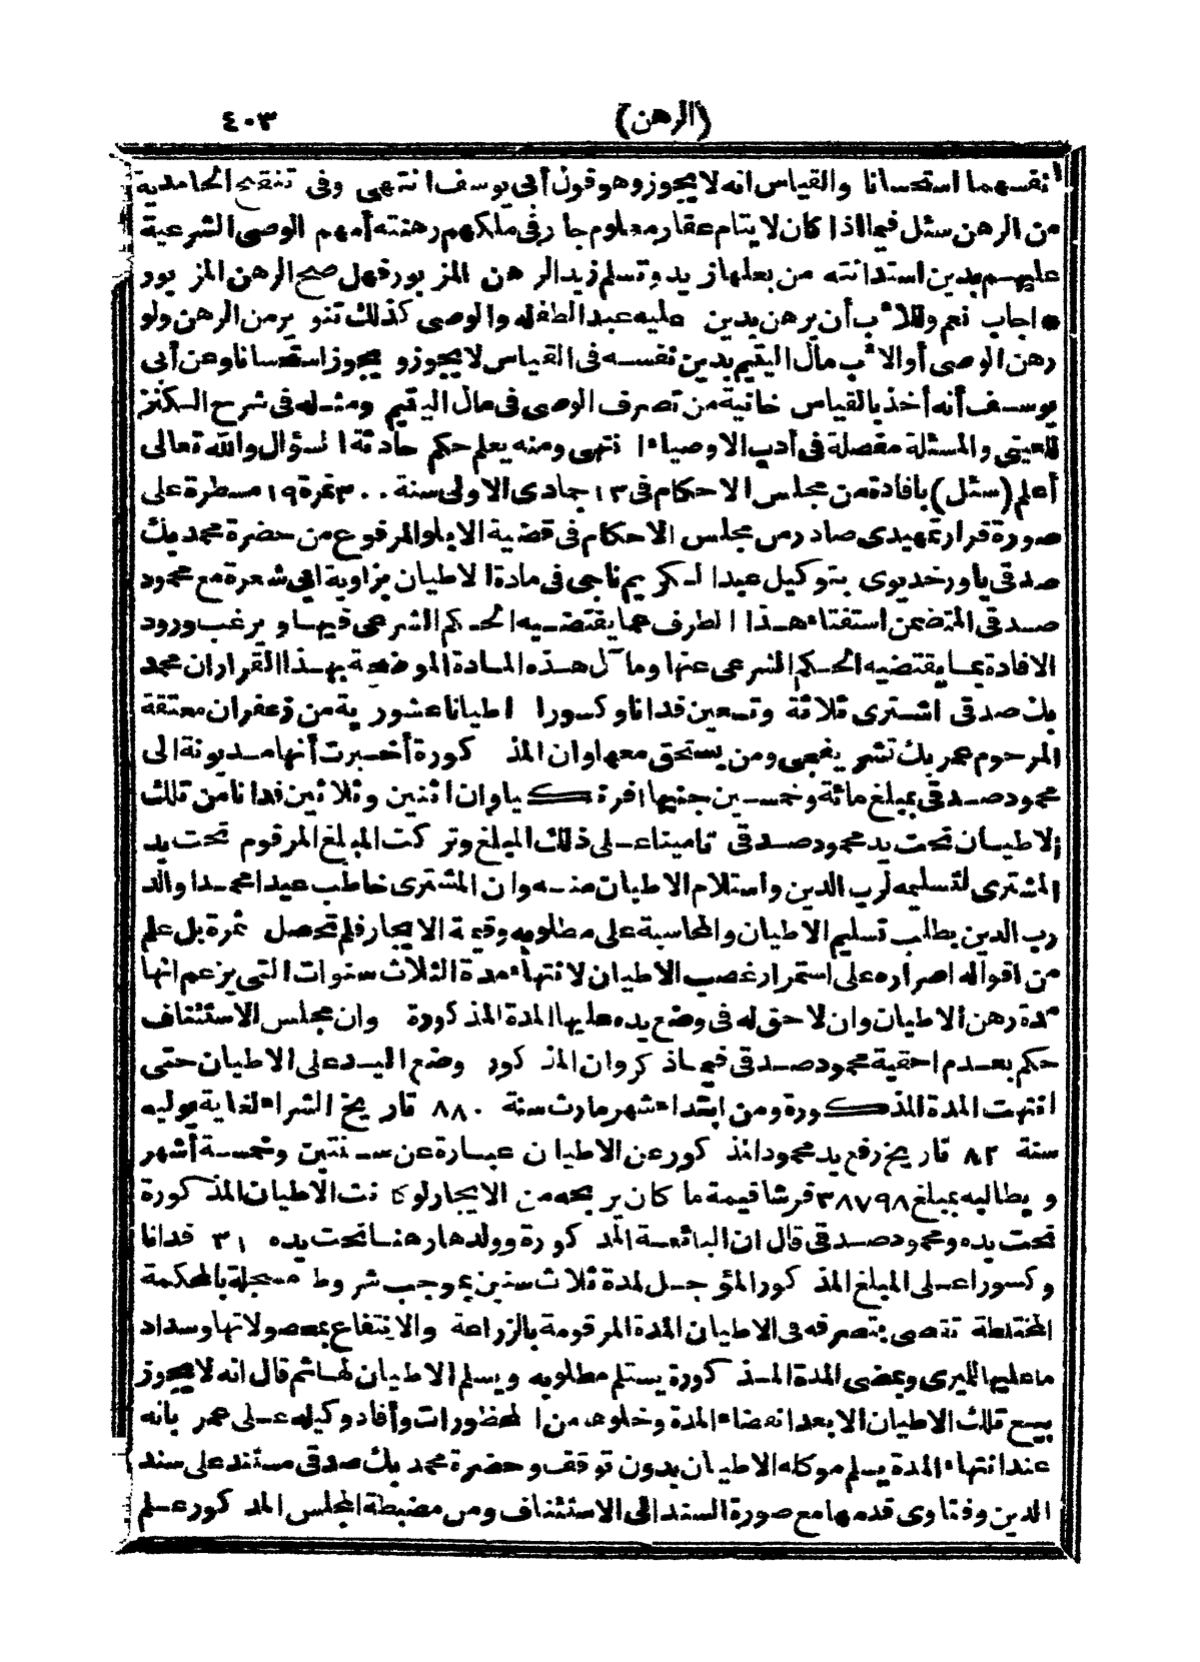 (الرهن) ٤٠٣
أنفسهما استحسانا والقياس انه لا يجوز وهو قول أبى يوسف انتهى وفى تنقيح الحامدية
من الرهن سئل فيما اذا كان لايتام عقار معلوم جار فى ملكهم رهنته أمهم الوصى الشرعية
عليهم بدين استدانته من بعلها زيد وتسلم زيد الرهن المزبور فهل صح الرهن المزبور
* اجاب نعم وللاب أن يرهن بدين عليه عبد الطفله والوصى كذلك تنوير من الرهن ولو
رهن الوصى أو الاب مال اليتيم بدين نفسه فى القياس لا يجوز ويجوز استحسانا وعن أبى
يوسف أنه أخذ بالقياس خانية من تصرف الوصى فى مال اليتيم ومثله فى شرح الكنز
للعينى والمسئلة مفصلة فى أدب الاوصياء انتهى ومنه يعلم حكم حادثة السؤال والله تعالى
أعلم (سئل) بافادة من مجلس الاحكام فى ١٣ جمادى الاولى سنة ٣٠٠ نمرة ١٩ مسطرة على
صورة قرار تمهيدى صادر من مجلس الاحكام فى قضية الايلو المرفوع من حضرة محمد بك
صدقى ياور خديوى بتوكيل عبد الكريم ناجى فى مادة الاطيان بزاوية ابى شعرة مع محمود
صدقى المتضمن استفتاء هذا الطرف عما يقتضيه الحكم الشرعى فيها ويرغب ورود
الافادة بما يقتضيه الحكم الشرعى عنها ومآل هذه المادة الموضحة بهذا القرار ان محمد
بك صدقى اشترى ثلاثة وتسعين فدانا وكسورا اطيانا عشورية من زعفران معتقة
المرحوم عمر بك تشريفجى ومن يستحق معها وان المذكورة أخبرت أنها مديونة الى
محمود صدقى بمبلغ مائة وخمسين جنيها افرنكيا وان اثنين وثلاثين فدانا من تلك
الاطيان تحت يد محمود صدقى تامينا على ذلك المبلغ وتركت المبلغ المرقوم تحت يد
المشترى لتسليمه لرب الدين واستلام الاطيان منه وان المشترى خاطب عيد امحمدا والد
رب الدين بطلب تسليم الاطيان والمحاسبة على مطلوبه وقيمة الايجار فلم تحصل ثمرة بل علم
من اقواله اصراره على استمرار غصب الاطيان لانتهاء مدة الثلاث سنوات التى يزعم انها
مدة رهن الاطيان وان لا حق له فى وضع يده عليها المدة المذكورة وان مجلس الاستئناف
حكم بعدم احقية محمود صدقى فيما ذكر وان المذكور وضع اليد على الاطيان حتى
انتهت المدة المذكورة ومن ابتداء شهر مارث سنة ٨٨٠ تاريخ الشراء لغاية يوليه
سنة ٨٢ تاريخ رفع يد محمود المذكور عن الاطيان عبارة عن سنتين وخمسة أشهر
ويطالبه بمبلغ ٣٨٧٩٨ قرشا قيمة ما كان يربحه من الايجار لو كانت الاطيان المذكورة
تحت يده ومحمود صدقى قال ان البائعة المذكورة وولدها رهنا تحت يده ٣١ فدانا
وكسورا على المبلغ المذكور المؤجل لمدة ثلاث سنين بموجب شروط مسجلة بالمحكمة
المختلطة تقضى بتصرفه فى الاطيان المدة المرقومة بالزراعة والانتفاع بمحصولاتها وسداد
ما عليها للميرى وبمضى المدة المذكورة يستلم مطلوبه ويسلم الاطيان لهما ثم قال انه لا يجوز
بيع تلك الاطيان الا بعد انقضاء المدة وخلوها من المحظورات وأفاد وكيله على عمر بانه
عند انتهاء المدة يسلم موكله الاطيان بدون توقف وحضرة محمد بك صدقى مستند على سند
الدين وفتاوى قدمها مع صورة السند الى الاستئناف ومن مضبطة المجلس المذكور علم